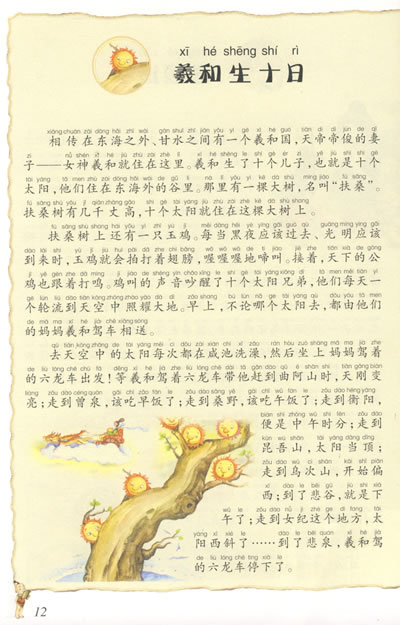 xī hé shēng shí rì
羲和生十日
相传在东海之外、甘水之间有一个羲和国，天帝帝俊的妻
子——女神羲和就住在这里。羲和生了十个儿子，也就是十个
太阳，他们住在东海外的谷里。那里有一棵大树，名叫“扶桑”。
扶桑树有几千丈高，十个太阳就住在这棵大树上。
扶桑树上还有一只玉鸡。每当黑夜应该过去、光明应该
到来时，玉鸡就会拍打着翅膀，喔喔喔地啼叫。接着，天下的公
鸡也跟着打鸣。鸡叫的声音吵醒了十个太阳兄弟，他们每天一
个轮流到天空中照耀大地。早上，不论哪个太阳去，都由他们
的妈妈羲和驾车相送。
去天空中的太阳每次都在咸池洗澡，然后坐上妈妈驾着
的六龙车出发！等羲和驾着六龙车带他走到曲阿山时，天刚变
亮；走到曾泉，该吃早饭了；走到桑野，该吃午饭了；走到衡阳，
便是中午时分；走到
昆吾山，太阳当顶；
走到乌次山，开始偏
西；到了悲谷，就是下
午了；走到女纪这个地方，太
阳西斜了……到了悲泉，羲和驾
的六龙车停下了。
12